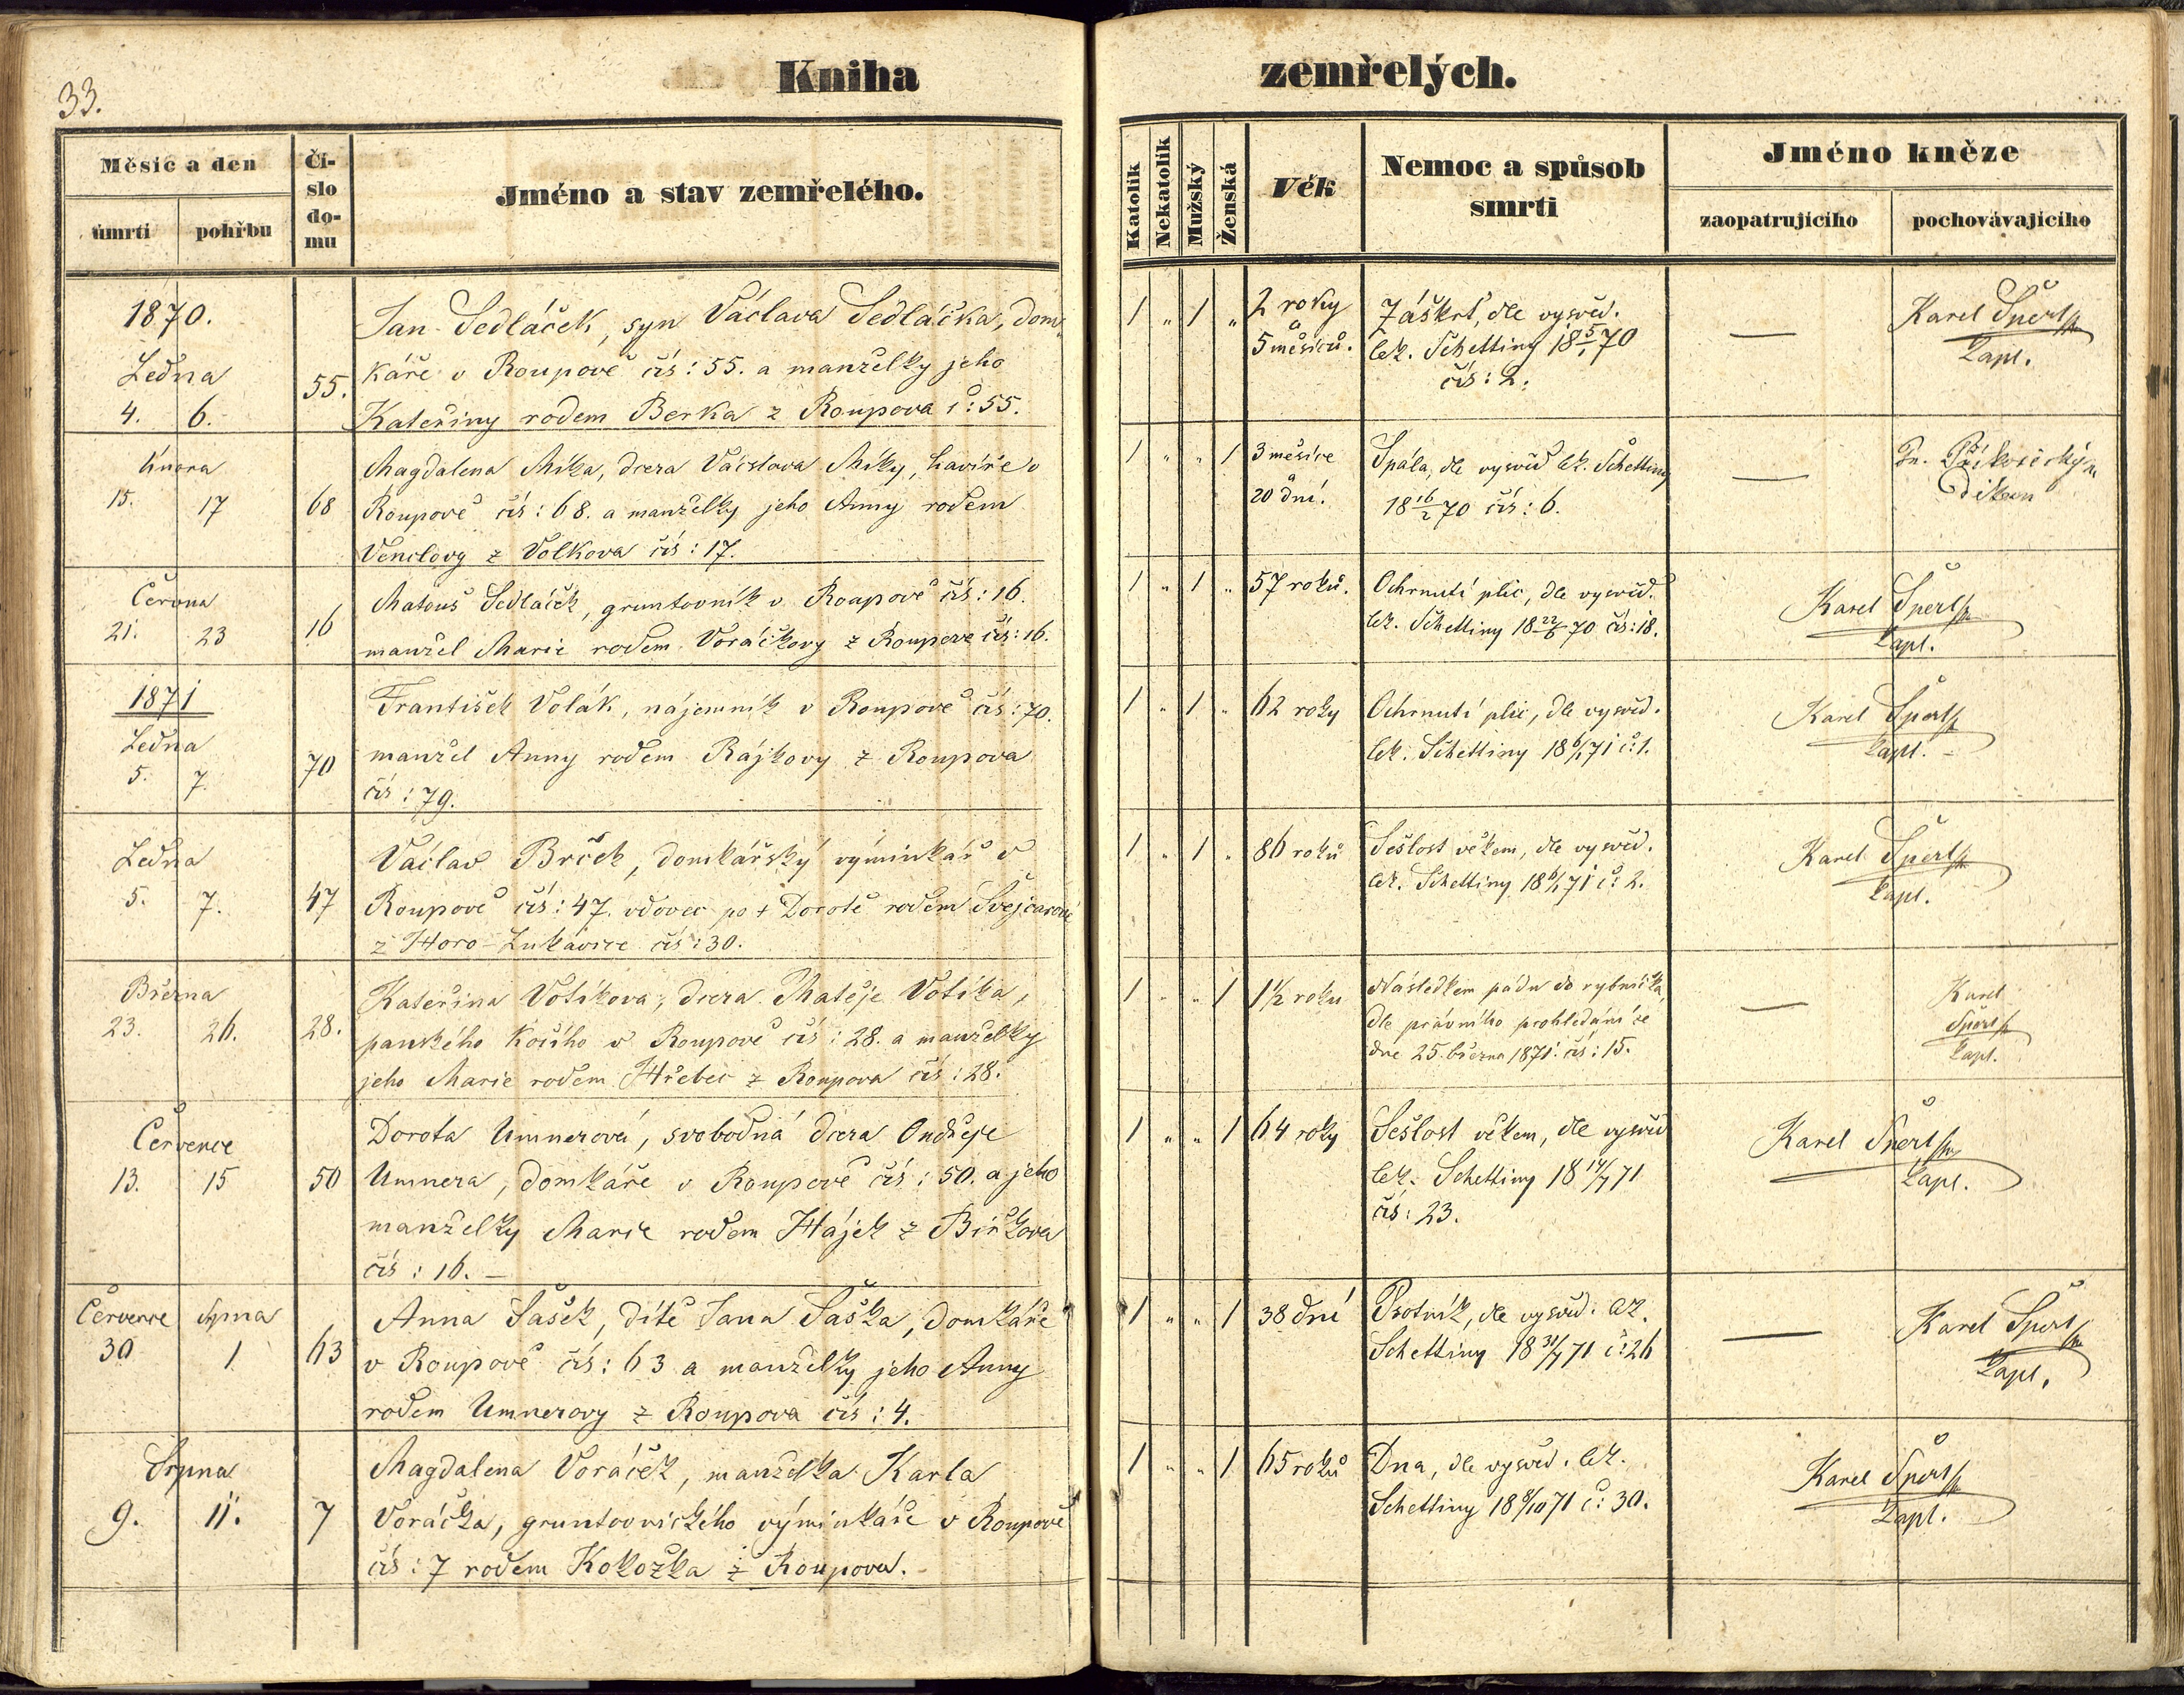 33.
Kniha zemřelých.
Měsíc a den
úmrtí
pohřbu
Čí-
slo
do-
mu
Jméno a stav zemřelého.
Katolík
Nekatolík
Mužský
Ženská
Věk
Nemoc a spůsob
smrti
Jméno kněze
zaopatrujícího
pochovávajícího
1870.
Ledna
4. 6.
55.
Jan Sedláček, syn Václava Sedláčka, dom-
káře v Roupově čís: 55. a manželky jeho
Kateřiny rodem Berka z Roupova č: 55.
1 „ 1 „
2 roky
a
5 měsíců.
Záškrt, dle vysvěd.
lek. Schettiny 18 5/1 70
čís: 2.
—
Karel Šperl
kapl.
února
15. 17
68
Magdalena Míka, dcera Václava Míky, havíře v
Roupově čís: 68. a manželky jeho Anny rodem
Venclovy z Volkova čís: 17.
1 „ „ 1
3 měsíce
a
20 dní.
Spála, dle vysvěd lek. Schettiny
18 16/2 70 čís: 6.
—
děkan
Června
21. 23
16
Matouš Sedláček, gruntovník v Roupově čís: 16.
manžel Marie rodem Voráčkovy z Roupova čís: 16.
1 „ 1 „
57 roků.
Ochrnutí plic, dle vysvěd.
lek. Schettiny 18 22/6 70 čís: 18.
Karel Šperl
kapl.
1871
Ledna
5. 7.
70
František Volák, nájemník v Roupově čís: 70.
manžel Anny rodem Rájkovy z Roupova
čís: 79.
1 „ 1 „
62 roky
Ochrnutí plic, dle vysvěd.
lek. Schettiny 18 6/1 71 č: 1.
Karel Šperl
kapl.
Ledna
5. 7.
47
Václav Brček, domkářský výminkář v
Roupově čís: 47. vdovec po + Dorotě rodem Švejcarově
z Horo-Lukavice čís: 30.
1 „ 1 „
86 roků
Sešlost věkem, dle vysvěd.
lek. Schettiny 18 6/1 71 č: 2.
Karel Šperl
kapl.
Března
23. 26.
28.
Kateřina Votíkova, dcera Matěje Votíka,
panského kočího v Roupově čís: 28. a manželky
jeho Marie rodem Hřebec z Roupova čís: 28.
1 „ „ 1
1½ roku
Následkem pádu do rybníčka,
dle právního prohledání ze
dne 25. března 1871. čís: 15.
—
Karel
Šperl
kapl.
Července
13. 15
50
Dorota Umnerová, svobodná dcera Ondřeje
Umnera, domkáře v Roupově čís: 50. a jeho
manželky Marie rodem Hájek z Biřkova
čís: 16. —
1 „ „ 1
64 roky
Sešlost věkem, dle vysvěd
lek. Schettiny 18 14/7 71
čís: 23.
Karel Šperl
kapl.
Července Srpna
30 1
63
Anna Šašek, dítě Jana Šaška, domkáře
v Roupově čís: 63 a manželky jeho Anny
rodem Umnerovy z Roupova čís: 4.
1 „ „ 1
38 dní
Psotník, dle vysvěd. lek.
Schettiny 18 31/7 71 č: 26
—
Karel Šperl
kapl.
Srpna
9. 11.
7
Magdalena Voráček, manželka Karla
Voráčka, gruntovnického výminkáře v Roupově
čís: 7 rodem Kokožka z Roupova.
1 „ „ 1
65 roků
Dna, dle vysvěd. lek.
Schettiny 18 8/10 71 č: 30.
Karel Šperl
kapl.